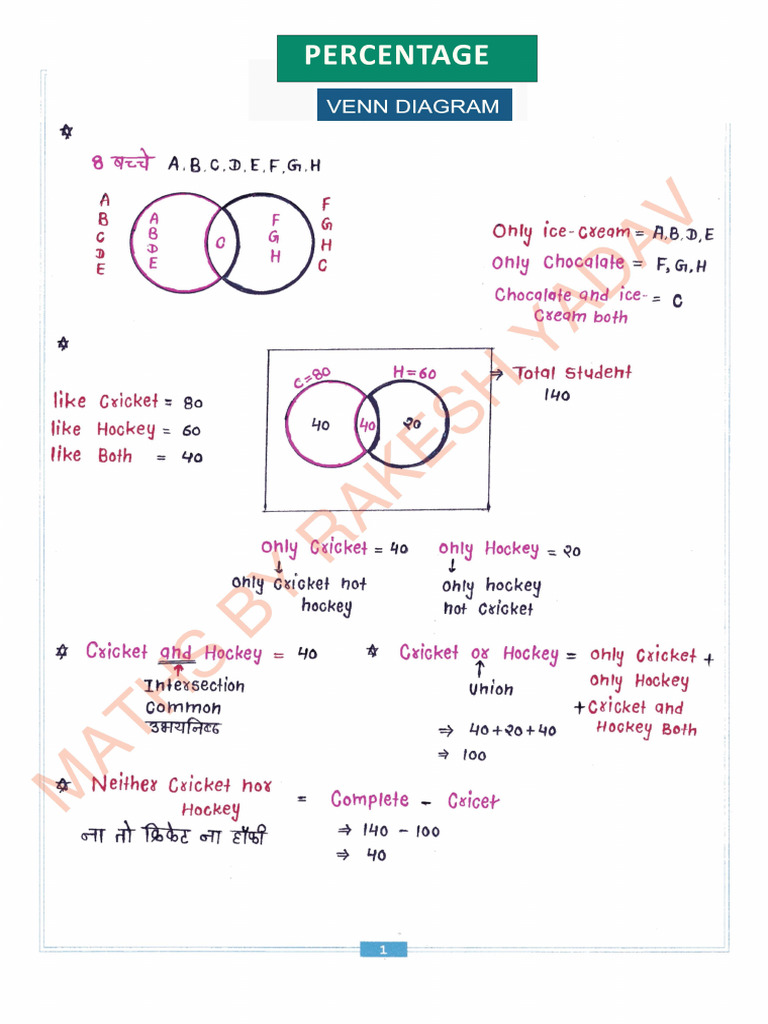 PERCENTAGE
VENN DIAGRAM
8 बच्चे A, B, C, D, E, F, G, H
A
B
C
D
E
A
B
D
E
C
F
G
H
F
G
H
C
Only ice-cream = A, B, D, E
Only Chocalate = F, G, H
Chocalate and ice- = C
Cream both
like Cricket = 80
like Hockey = 60
like Both = 40
C=80
H=60
40
40
20
⇒ Total student
140
only Cricket = 40
↓
only cricket not
hockey
only Hockey = 20
↓
only hockey
not cricket
☆ Cricket and Hockey = 40
↑
Intersection
Common
उभयनिष्ठ
☆ Cricket or Hockey = only Cricket +
only Hockey
+ Cricket and
Hockey Both
↑
union
⇒ 40+20+40
⇒ 100
☆ Neither Cricket nor
Hockey
= Complete - Cricet
ना तो क्रिकेट ना हॉकी
⇒ 140 - 100
⇒ 40
MATHS BY RAKESH YADAV
1